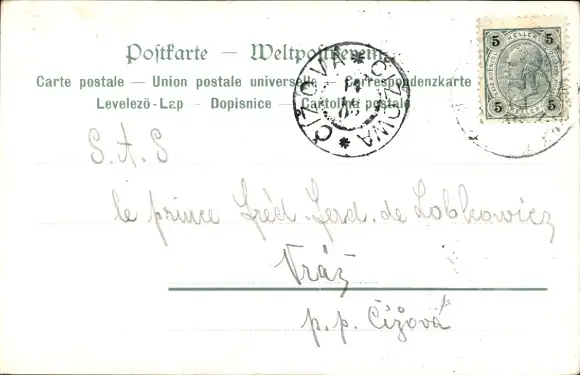 Postkarte — Weltpostverein
Carte postale — Union postale universelle — Correspondenzkarte
Levelezö-Lap — Dopisnice — Cartolina postale
ČIŽOVA * ČIŽOWA *
5 HELLER 5
5 5
S. A. S
le prince Fréd. Ferd. de Lobkowicz
Vráž
p. p. Čížová